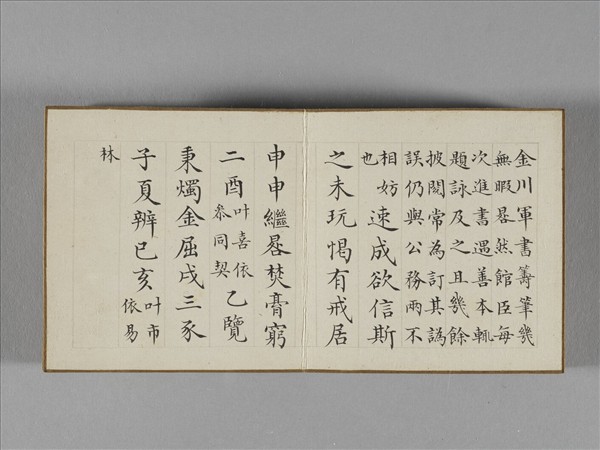 金川軍書籌筆幾
無暇晷然館臣每
次進書遇善本輒
題詠及之且幾餘
披閱常為訂其譌
誤仍與公務兩不
相妨
也
速成欲信斯
之未玩愒有戒居
申申繼晷焚膏窮
二酉
叶喜依
叅同契
乙覽
秉燭金屈戌三豕
子夏辨已亥
叶市
依易
林